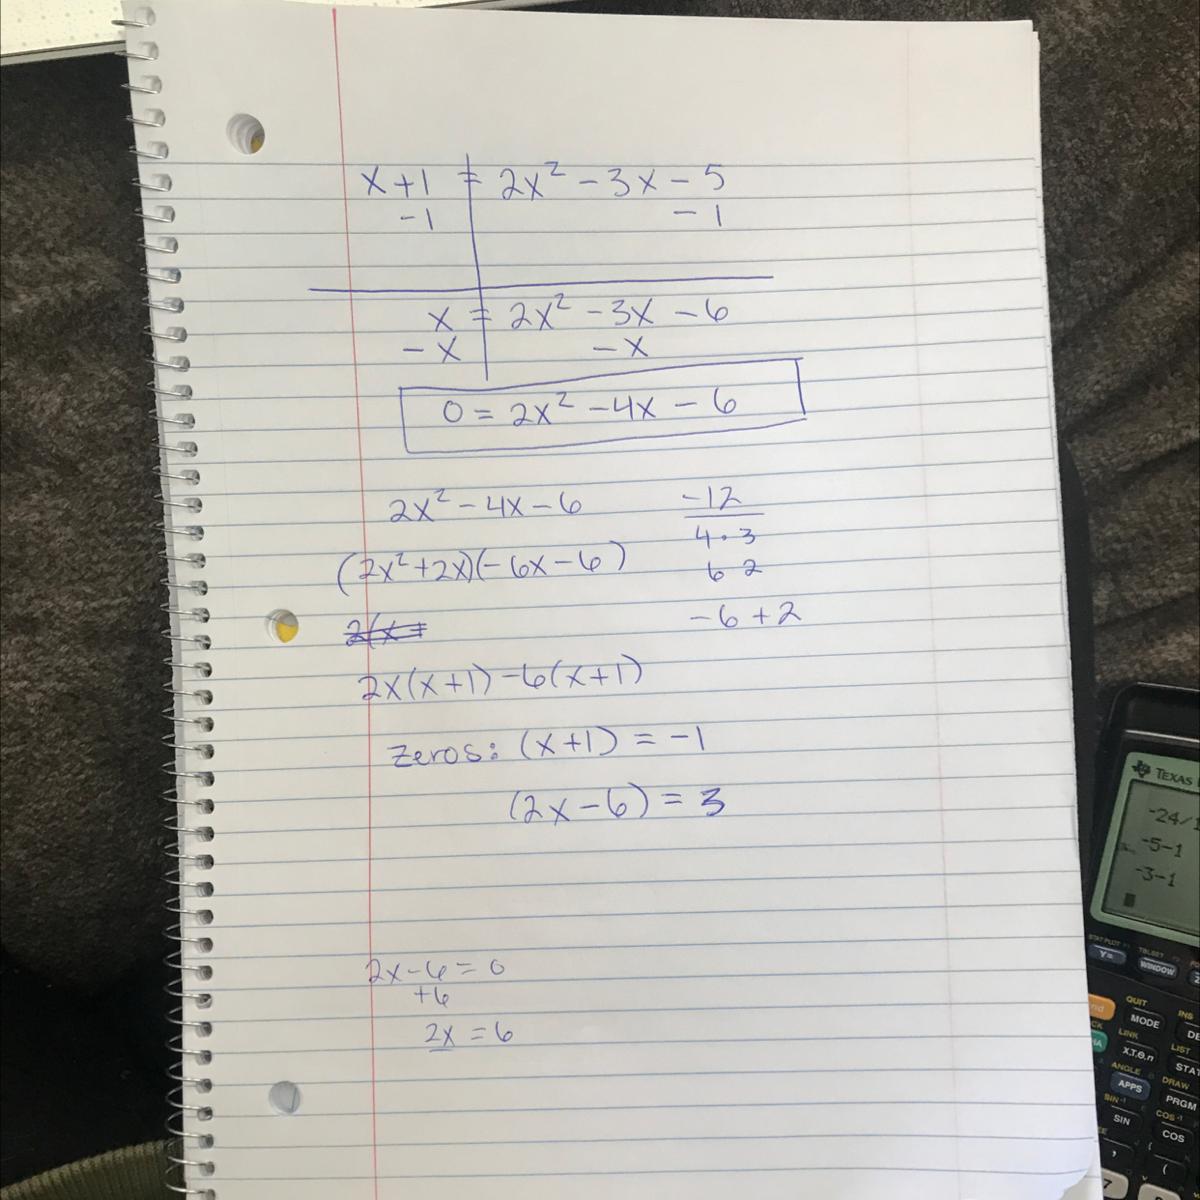 x+1 = 2x² - 3x - 5
-1 - 1
x = 2x² - 3x - 6
- x - x
0 = 2x² - 4x - 6
2x² - 4x - 6
-12
4 · 3
(2x² + 2x)(- 6x - 6)
6 2
2(x +
- 6 + 2
2x(x+1) - 6(x+1)
zeros: (x+1) = -1
(2x - 6) = 3
2x - 6 = 0
+6
2x = 6
TEXAS
-24/
-5-1
-3-1
STAT PLOT TBLSET
Y= WINDOW
QUIT INS
MODE DE
LINK LIST
X,T,θ,n STAT
ANGLE DRAW
APPS PRGM
SIN⁻¹ COS⁻¹
SIN COS
, (
7